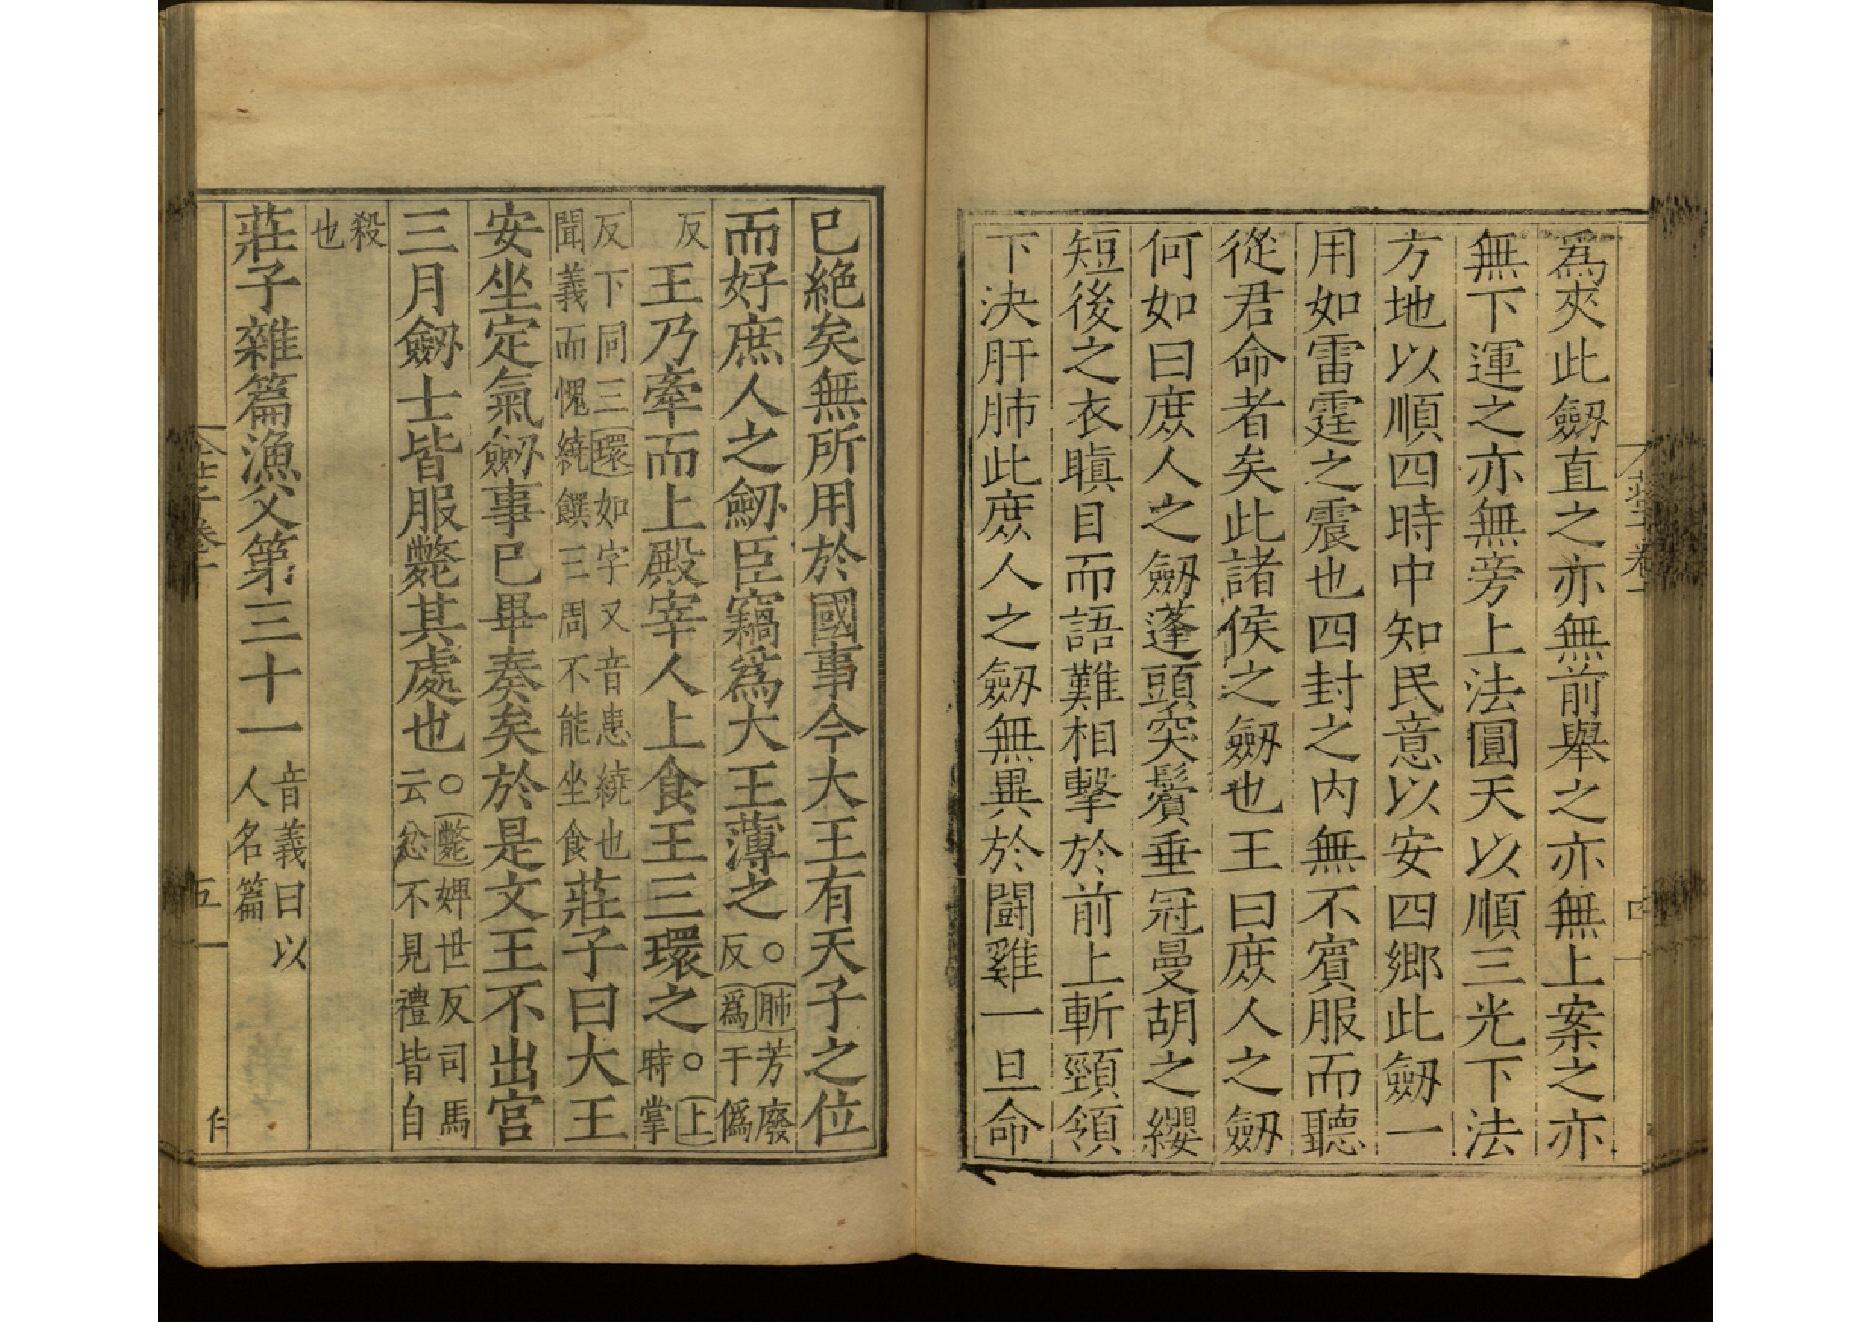 爲夾此劒直之亦無前舉之亦無上案之亦
無下運之亦無旁上法圓天以順三光下法
方地以順四時中知民意以安四鄉此劒一
用如雷霆之震也四封之内無不賓服而聽
從君命者矣此諸侯之劒也王曰庶人之劒
何如曰庶人之劒蓬頭突鬢垂冠曼胡之纓
短後之衣瞋目而語難相擊於前上斬頸領
下決肝肺此庶人之劒無異於鬪雞一旦命
已絶矣無所用於國事今大王有天子之位
而好庶人之劒臣竊爲大王薄之○肺芳廢
反爲于僞
反
王乃牽而上殿宰人上食王三環之○上
時掌
反下同三環如字又音患繞也
聞義而愧繞饌三周不能坐食
莊子曰大王
安坐定氣劒事已畢奏矣於是文王不出宮
三月劒士皆服斃其處也○斃婢世反司馬
云忿不見禮皆自
殺
也
莊子雜篇漁父第三十一
音義曰以
人名篇